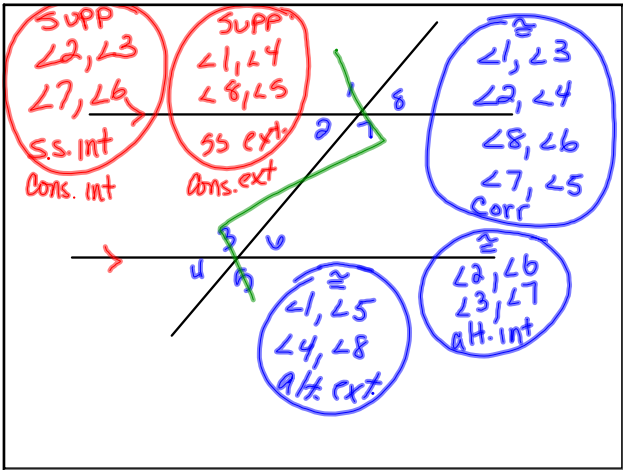 Supp
∠2, ∠3
∠7, ∠6
S.S. Int
Cons. int
Supp
∠1, ∠4
∠8, ∠5
SS ext.
Cons. ext
≅
∠1, ∠3
∠2, ∠4
∠8, ∠6
∠7, ∠5
Corr
1
8
2
7
3
6
4
5
≅
∠2, ∠6
∠3, ∠7
alt. int
≅
∠1, ∠5
∠4, ∠8
alt. ext